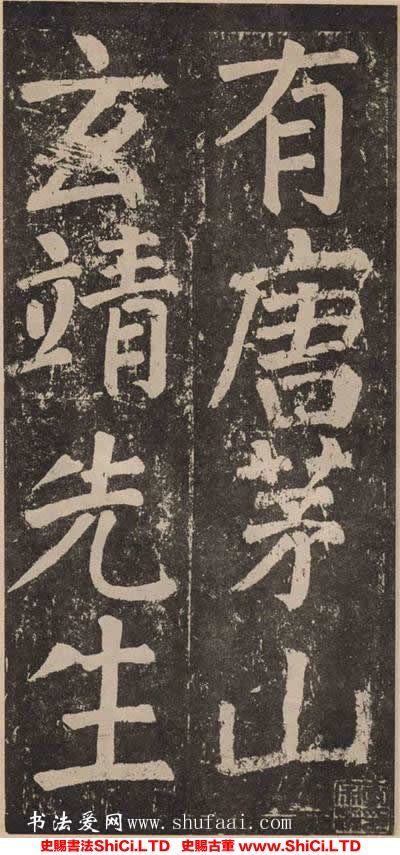 有唐茅山
玄靖先生
书法爱网
www.shufaai.com
史賜書法ShiCi.LTD 史賜古董 www.ShiCi.LTD